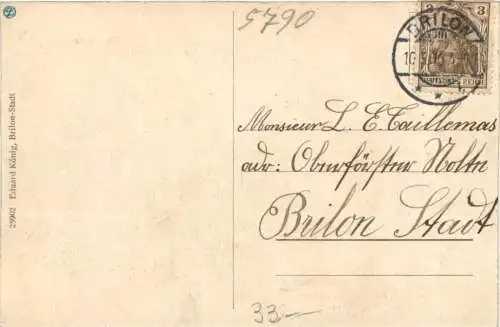 5790
3 3
BRILON
DEUTSCHES REICH
Monsieur L. E. Taillemas
adr: Oberförster Nolte
Brilon Stadt
33—
25902 Eduard König, Brilon-Stadt